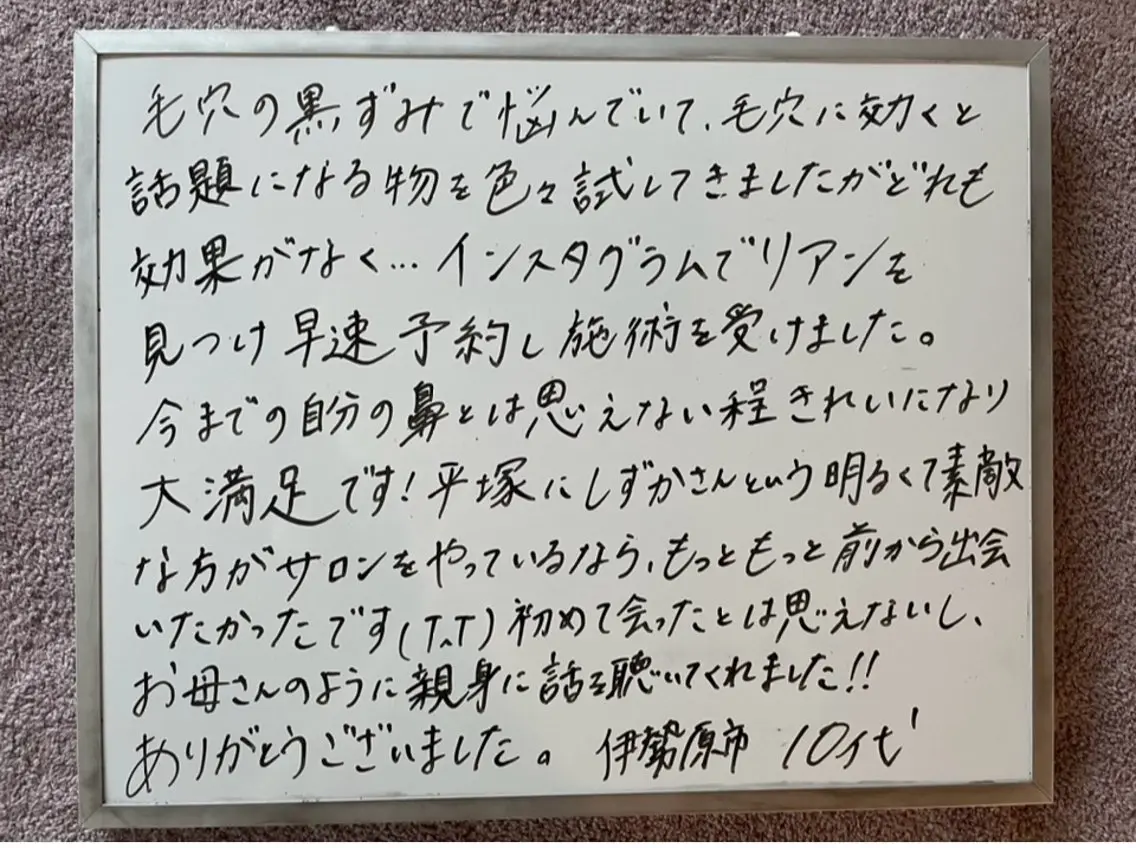 毛穴の黒ずみで悩んでいて、毛穴に効くと
話題になる物を色々試してきましたがどれも
効果がなく…インスタグラムでリアンを
見つけ早速予約し施術を受けました。
今までの自分の鼻とは思えない程きれいになり
大満足です！平塚にしずかさんという明るくて素敵
な方がサロンをやっているなら、もっともっと前から出会
いたかったです(T.T)初めて会ったとは思えないし、
お母さんのように親身に話を聴いてくれました!!
ありがとうございました。 伊勢原市 10代